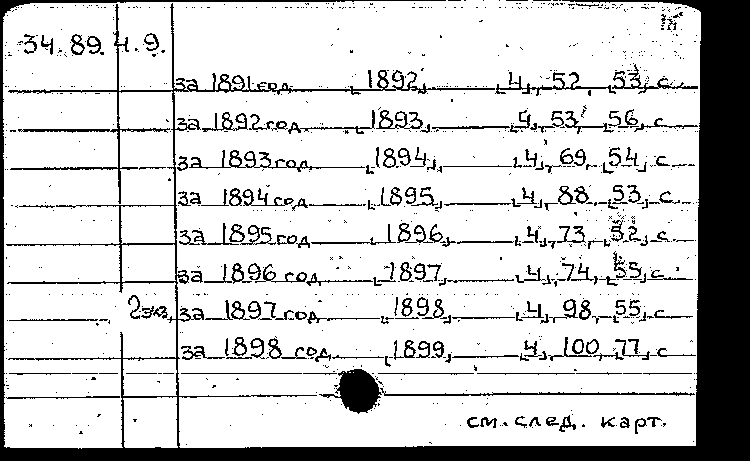 34.89.4.9.
за 1891 год ⌞1892⌟ ⌞4⌟, 52, ⌞53⌟ с
за 1892 год ⌞1893⌟ ⌞4⌟, 53, ⌞56⌟ с
за 1893 год ⌞1894⌟ ⌞4⌟, 69, ⌞54⌟ с
за 1894 год ⌞1895⌟ ⌞4⌟, 88, ⌞53⌟ с
за 1895 год ⌞1896⌟ ⌞4⌟, 73, ⌞52⌟ с
за 1896 год ⌞1897⌟ ⌞4⌟, 74, ⌞55⌟ с
2 экз. за 1897 год ⌞1898⌟ ⌞4⌟, 98, ⌞55⌟ с
за 1898 год ⌞1899⌟ ⌞4⌟, 100, ⌞77⌟ с
см. след. карт.